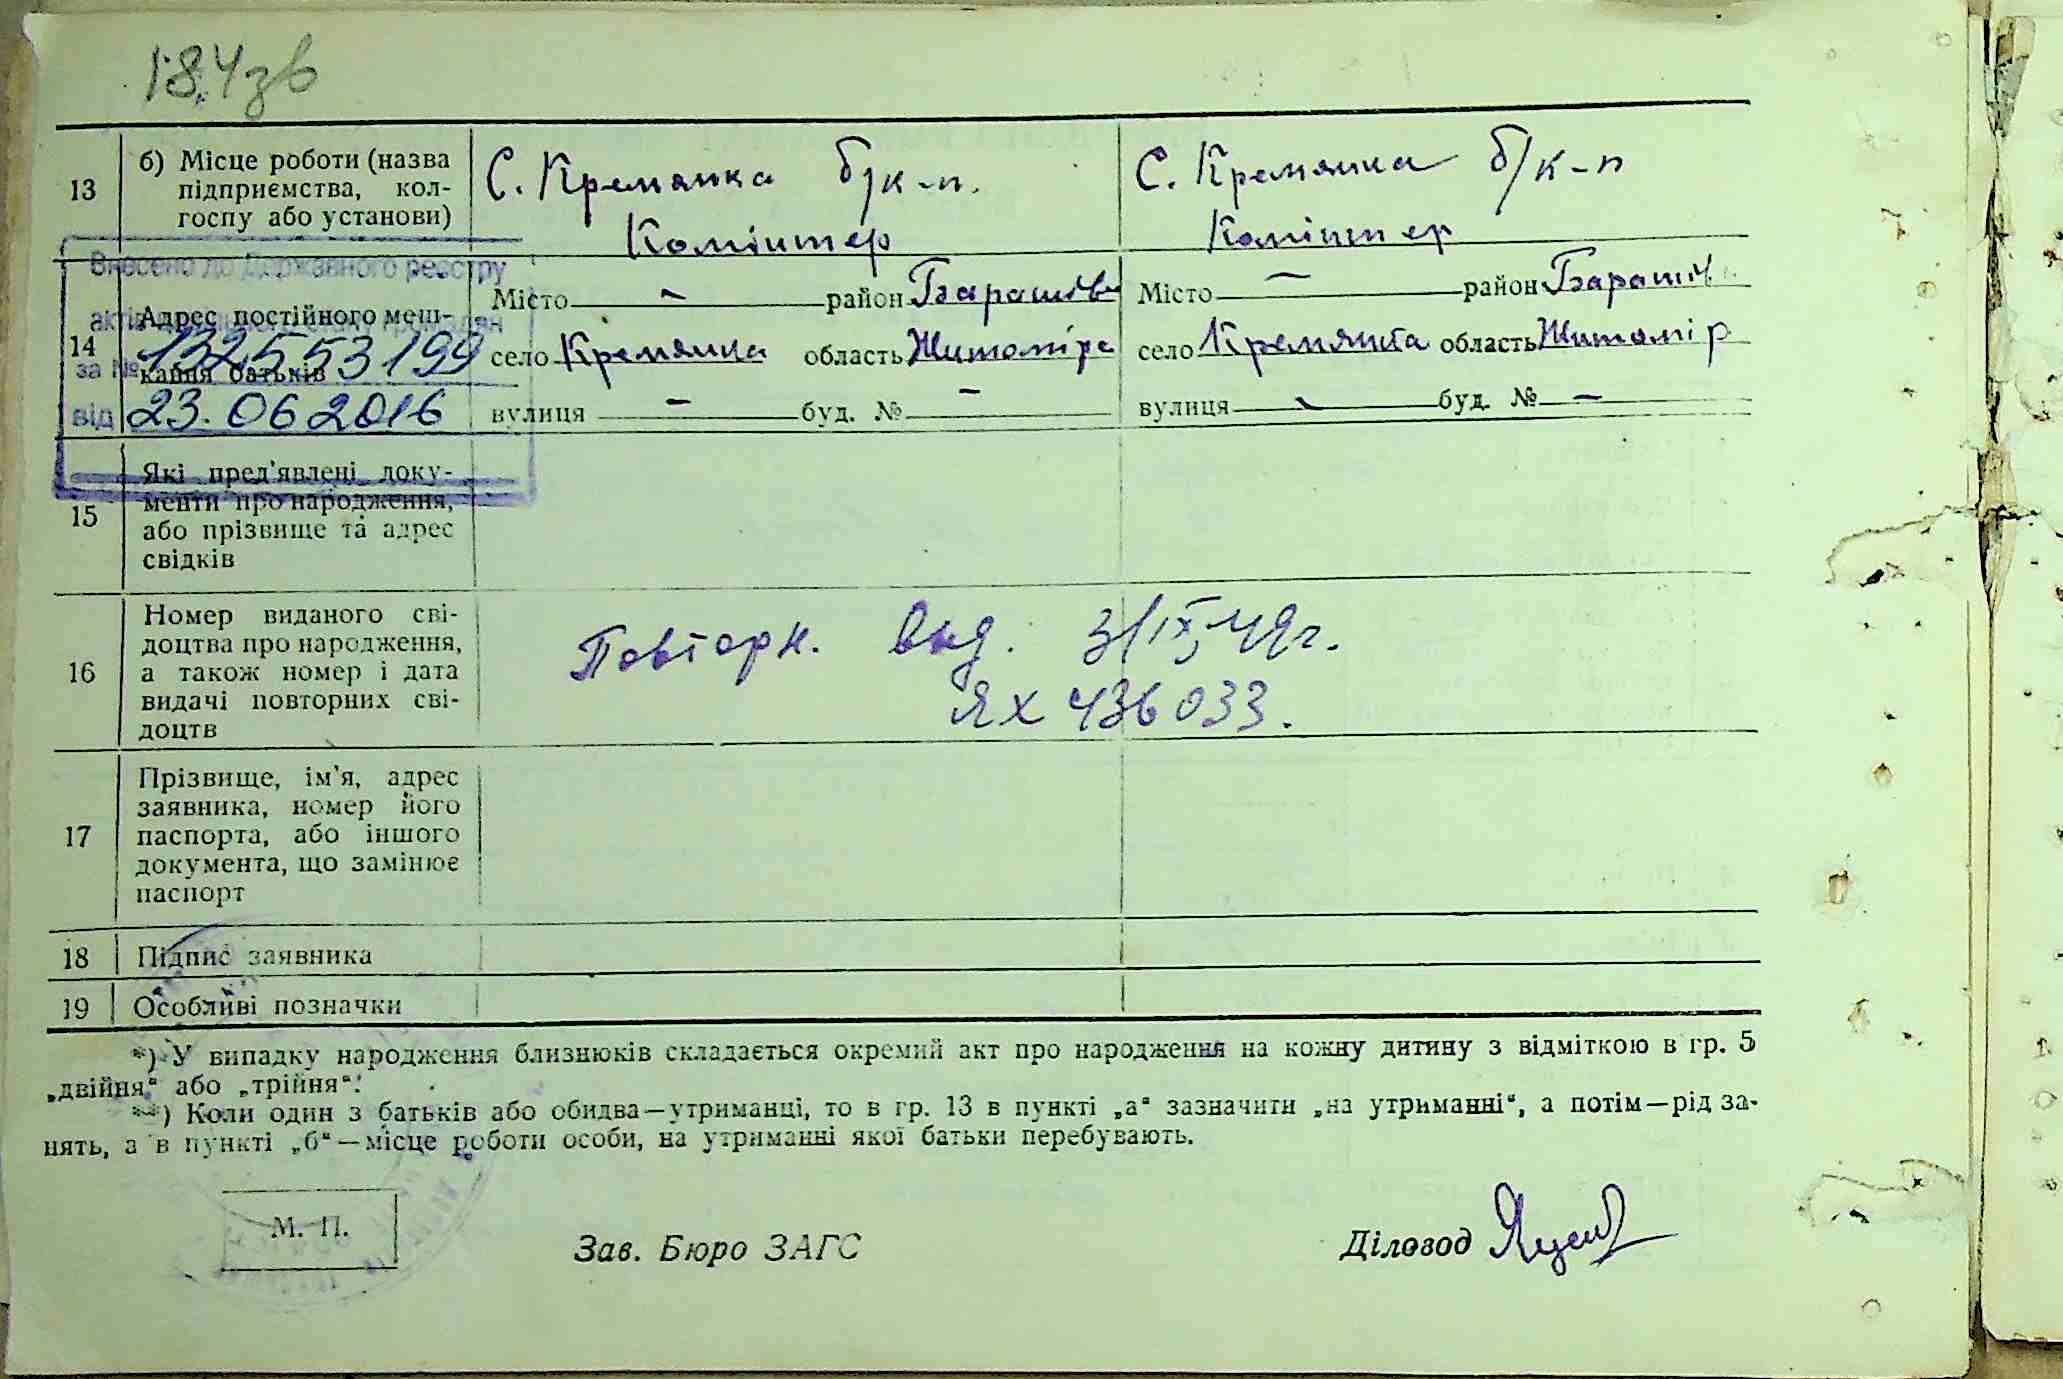 184зв
13
б) Місце роботи (назва
підприємства, кол-
госпу або установи)
С. Кремянка б/к-п.
Комінтер
С. Кремянка б/к-п
Комінтер
Внесено до Державного реєстру
актів цивільного стану громадян
за № 132553199
від 23.06 2016
14
Адрес постійного меш-
кання батьків
Місто — район Барашівс
село Кремянка область Житомірс
вулиця — буд. № —
Місто — район Бараші
село Кремянка область Житомір
вулиця — буд. № —
15
Які пред'явлені доку-
менти про народження,
або прізвище та адрес
свідків
16
Номер виданого сві-
доцтва про народження,
а також номер і дата
видачі повторних сві-
доцтв
Повторн. выд. 3/IX, 49г.
ЯХ 436033.
17
Прізвище, ім'я, адрес
заявника, номер його
паспорта, або іншого
документа, що замінює
паспорт
18 Підпис заявника
19 Особливі позначки
*) У випадку народження близнюків складається окремий акт про народження на кожну дитину з відміткою в гр. 5
„двійня“ або „трійня“.
**) Коли один з батьків або обидва—утриманці, то в гр. 13 в пункті „а“ зазначити „на утриманні“, а потім—рід за-
нять, а в пункті „б“—місце роботи особи, на утриманні якої батьки перебувають.
М. П.
Зав. Бюро ЗАГС
Діловод